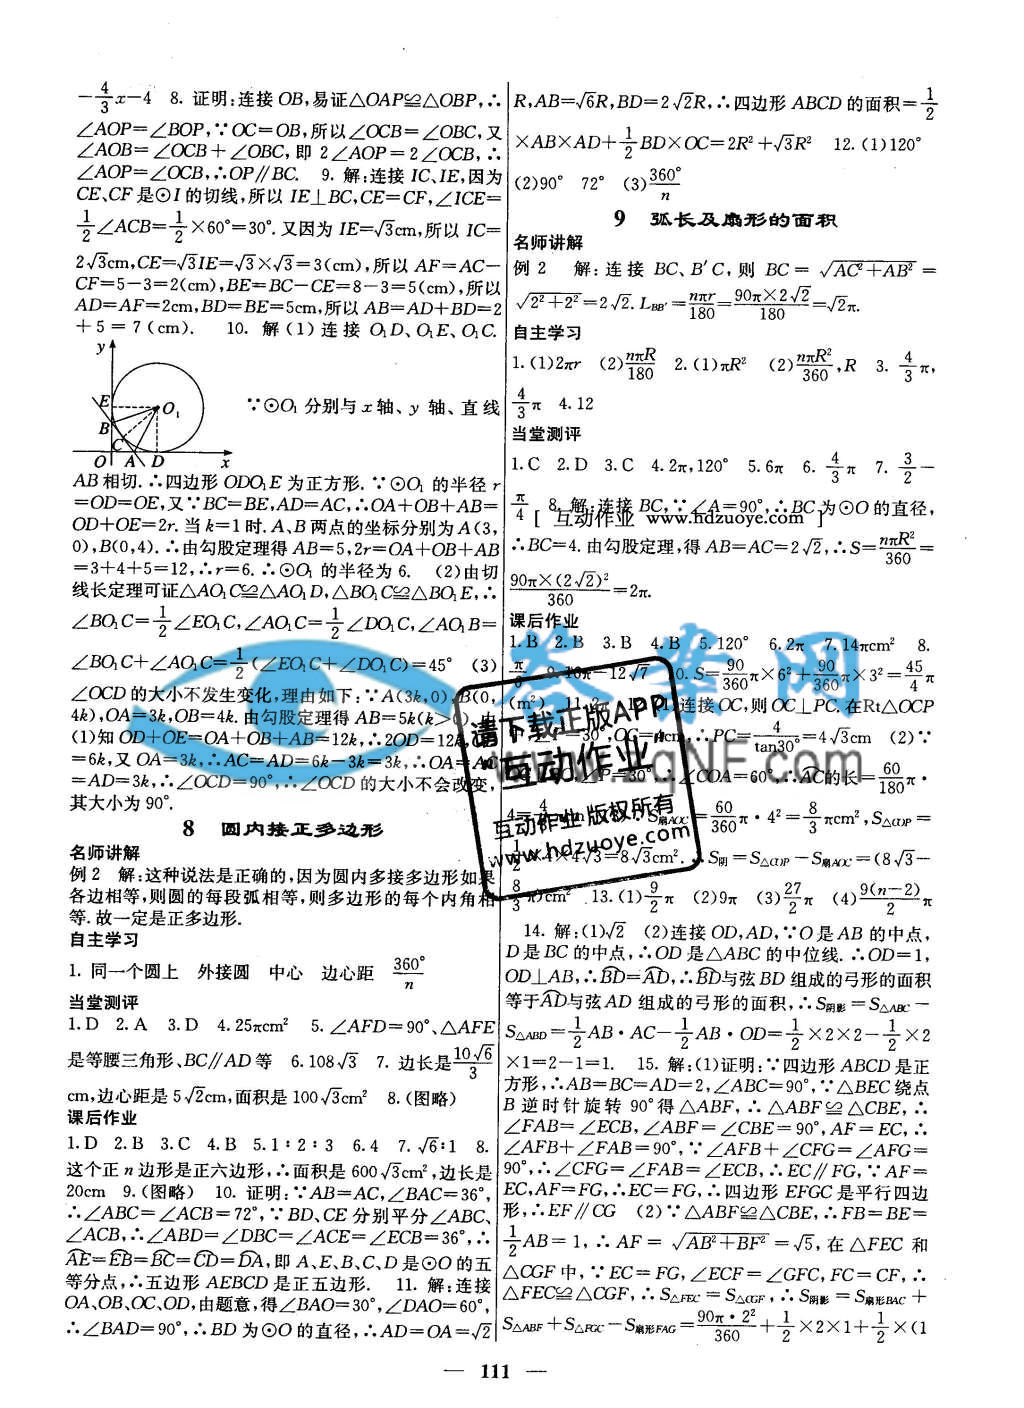 －4/3x－4　8. 证明:连接 OB,易证△OAP≌△OBP,∴
∠AOP=∠BOP,∵OC=OB,所以∠OCB=∠OBC,又
∠AOB=∠OCB+∠OBC,即 2∠AOP=2∠OCB,∴
∠AOP=∠OCB,∴OP∥BC.　9. 解:连接 IC、IE,因为
CE、CF 是⊙I 的切线,所以 IE⊥BC,CE=CF,∠ICE=
1/2∠ACB=1/2×60°=30°.又因为 IE=√3cm,所以 IC=
2√3cm,CE=√3IE=√3×√3=3(cm),所以 AF=AC－
CF=5－3=2(cm),BE=BC－CE=8－3=5(cm),所以
AD=AF=2cm,BD=BE=5cm,所以 AB=AD+BD=2
+5=7(cm).　10. 解(1)连接 O₁D、O₁E、O₁C.
y
E
O₁
B
C
O A D x
∵⊙O₁ 分别与 x 轴、y 轴、直线
AB 相切.∴四边形 ODO₁E 为正方形.∵⊙O₁ 的半径 r
=OD=OE,又∵BC=BE,AD=AC,∴OA+OB+AB=
OD+OE=2r.当 k=1 时.A、B 两点的坐标分别为 A(3,
0),B(0,4).∴由勾股定理得 AB=5,2r=OA+OB+AB
=3+4+5=12,∴r=6.∴⊙O₁ 的半径为 6.　(2)由切
线长定理可证△AO₁C≌△AO₁D,△BO₁C≌△BO₁E,∴
∠BO₁C=1/2∠EO₁C,∠AO₁C=1/2∠DO₁C,∠AO₁B=
∠BO₁C+∠AO₁C=1/2(∠EO₁C+∠DO₁C)=45°　(3)
∠OCD 的大小不发生变化,理由如下:∵A(3k,0),B(0,
4k),OA=3k,OB=4k.由勾股定理得 AB=5k(k>0).由
(1)知 OD+OE=OA+OB+AB=12k,∴2OD=12k,
=6k,又 OA=3k,∴AC=AD=6k－3k=3k,∴OA=AC
=AD=3k,∴∠OCD=90°,∴∠OCD 的大小不会改变,
其大小为 90°.
8　圆内接正多边形
名师讲解
例 2　解:这种说法是正确的,因为圆内多接多边形如果
各边相等,则圆的每段弧相等,则多边形的每个内角相
等.故一定是正多边形.
自主学习
1. 同一个圆上　外接圆　中心　边心距　360°/n
当堂测评
1.D　2.A　3.D　4.25πcm²　5.∠AFD=90°、△AFE
是等腰三角形、BC∥AD 等　6.108√3　7. 边长是10√6/3
cm,边心距是 5√2cm,面积是 100√3cm²　8.(图略)
课后作业
1.D　2.B　3.C　4.B　5.1∶2∶3　6.4　7.√6∶1　8.
这个正 n 边形是正六边形,∴面积是 600√3cm²,边长是
20cm　9.(图略)　10. 证明:∵AB=AC,∠BAC=36°,
∴∠ABC=∠ACB=72°,∵BD、CE 分别平分∠ABC、
∠ACB,∴∠ABD=∠DBC=∠ACE=∠ECB=36°,∴
AE=EB=BC=CD=DA,即 A、E、B、C、D 是⊙O 的五
等分点,∴五边形 AEBCD 是正五边形.　11. 解:连接
OA、OB、OC、OD,由题意,得∠BAO=30°,∠DAO=60°,
∴∠BAD=90°,∴BD 为⊙O 的直径,∴AD=OA=√2
R,AB=√6R,BD=2√2R,∴四边形 ABCD 的面积=1/2
×AB×AD+1/2BD×OC=2R²+√3R²　12.(1)120°
(2)90°　72°　(3)360°/n
9　弧长及扇形的面积
名师讲解
例 2　解:连接 BC、B′C,则 BC=√AC²+AB²=
√2²+2²=2√2. L_BB′=nπr/180=90π×2√2/180=√2π.
自主学习
1.(1)2πr　(2)nπR/180　2.(1)πR²　(2)nπR²/360,R　3. 4/3π,
4/3π　4.12
当堂测评
1.C　2.D　3.C　4.2π,120°　5.6π　6. 4/3π　7. 3/2－
π/4　8. 解:连接 BC,∵∠A=90°,∴BC 为⊙O 的直径,
[ 互动作业 www.hdzuoye.com ]
∴BC=4.由勾股定理,得 AB=AC=2√2,∴S=nπR²/360=
90π×(2√2)²/360=2π.
课后作业
1.B　2.B　3.B　4.B　5.120°　6.2π　7.14πcm²　8.
9.16π－12√7　10.S=90/360π×6²+90/360π×3²=45/4π
(m²)　连接 OC,则 OC⊥PC.在Rt△OCP
=30°,OC=4cm,∴PC=4/tan30°=4√3cm　(2)∵
∠P=30°,∴∠COA=60°,∴AC的长=60/180π·
S扇AOC=60/360π·4²=8/3πcm²,S△COP=
1/2×4×4√3=8√3cm².∴S阴=S△COP－S扇AOC=(8√3－
8/3π)cm²　13.(1)9/2π　(2)9π　(3)27/2π　(4)9(n－2)/2π
14. 解:(1)√2　(2)连接 OD,AD,∵O 是 AB 的中点,
D 是 BC 的中点,∴OD 是△ABC 的中位线.∴OD=1,
OD⊥AB,∴BD=AD,∴BD与弦 BD 组成的弓形的面积
等于AD与弦 AD 组成的弓形的面积,∴S阴影=S△ABC－
S△ABD=1/2AB·AC－1/2AB·OD=1/2×2×2－1/2×2
×1=2－1=1.　15. 解:(1)证明:∵四边形 ABCD 是正
方形,∴AB=BC=AD=2,∠ABC=90°,∵△BEC 绕点
B 逆时针旋转 90°得△ABF,∴△ABF≌△CBE,∴
∠FAB=∠ECB,∠ABF=∠CBE=90°,AF=EC,∴
∠AFB+∠FAB=90°,∵∠AFB+∠CFG=∠AFG=
90°,∴∠CFG=∠FAB=∠ECB,∴EC∥FG,∵AF=
EC,AF=FG,∴EC=FG,∴四边形 EFGC 是平行四边
形,∴EF∥CG　(2)∵△ABF≌△CBE,∴FB=BE=
1/2AB=1,∴AF=√AB²+BF²=√5,在△FEC 和
△CGF 中,∵EC=FG,∠ECF=∠GFC,FC=CF,∴
△FEC≌△CGF,∴S△FEC=S△CGF,∴S阴影=S扇形BAC+
S△ABF+S△FGC－S扇形FAG=90π·2²/360+1/2×2×1+1/2×(1
— 111 —
答案网
www.
qNF.com
请下载正版APP
"互动作业"
互动作业 版权所有
www.hdzuoye.com